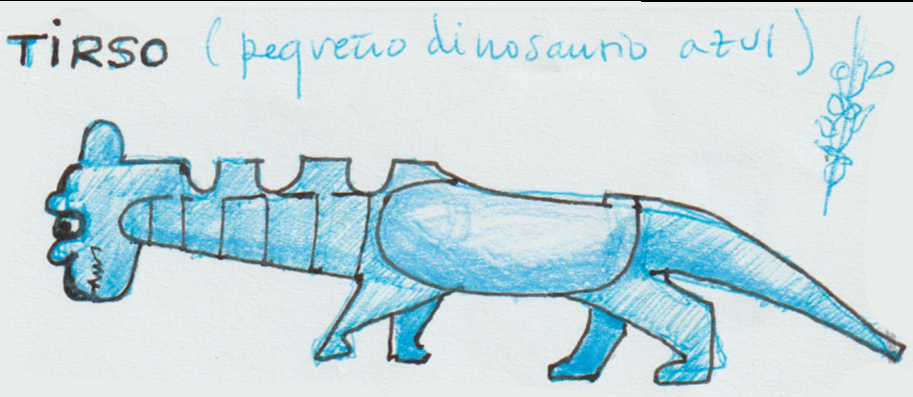 TiRSO (pequeño dinosaurio azul)